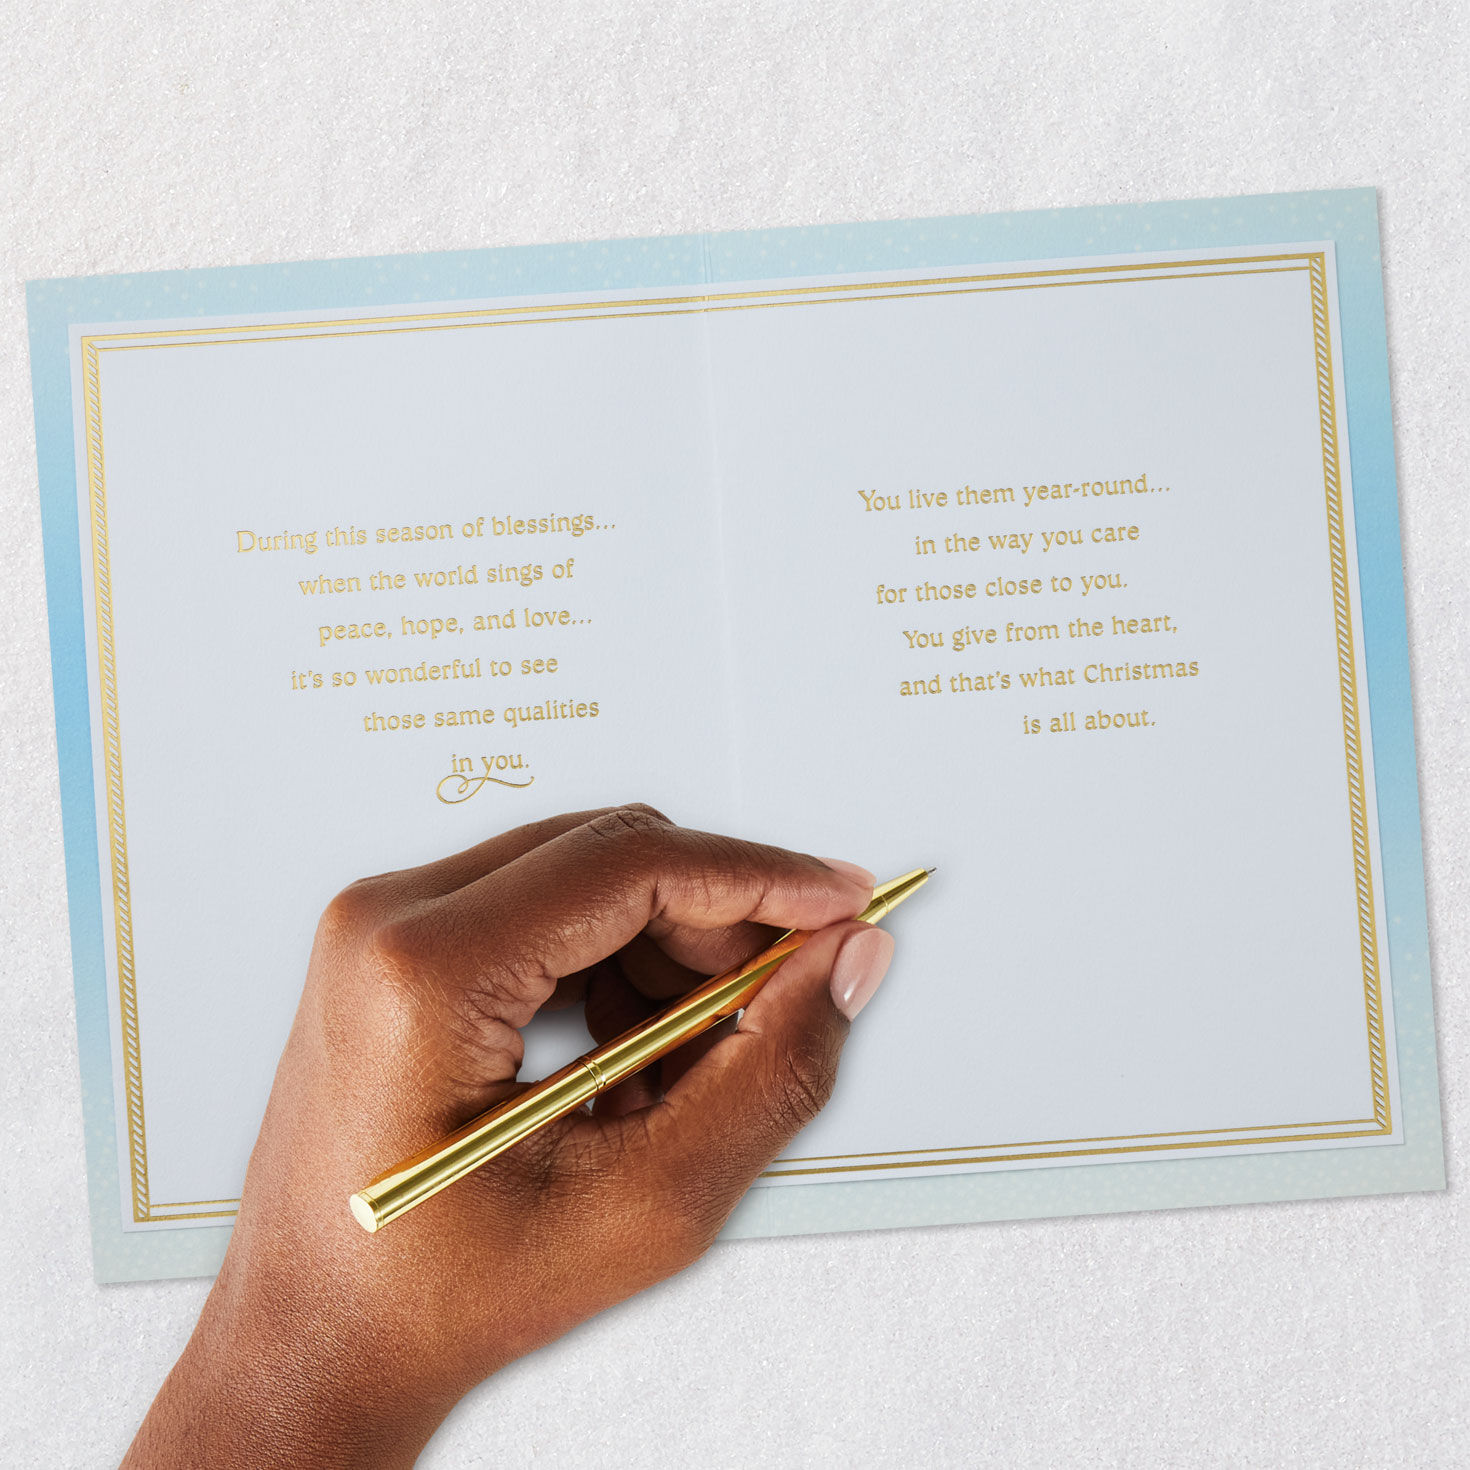 During this season of blessings...
when the world sings of
peace, hope, and love...
it's so wonderful to see
those same qualities
in you.
You live them year-round...
in the way you care
for those close to you.
You give from the heart,
and that's what Christmas
is all about.